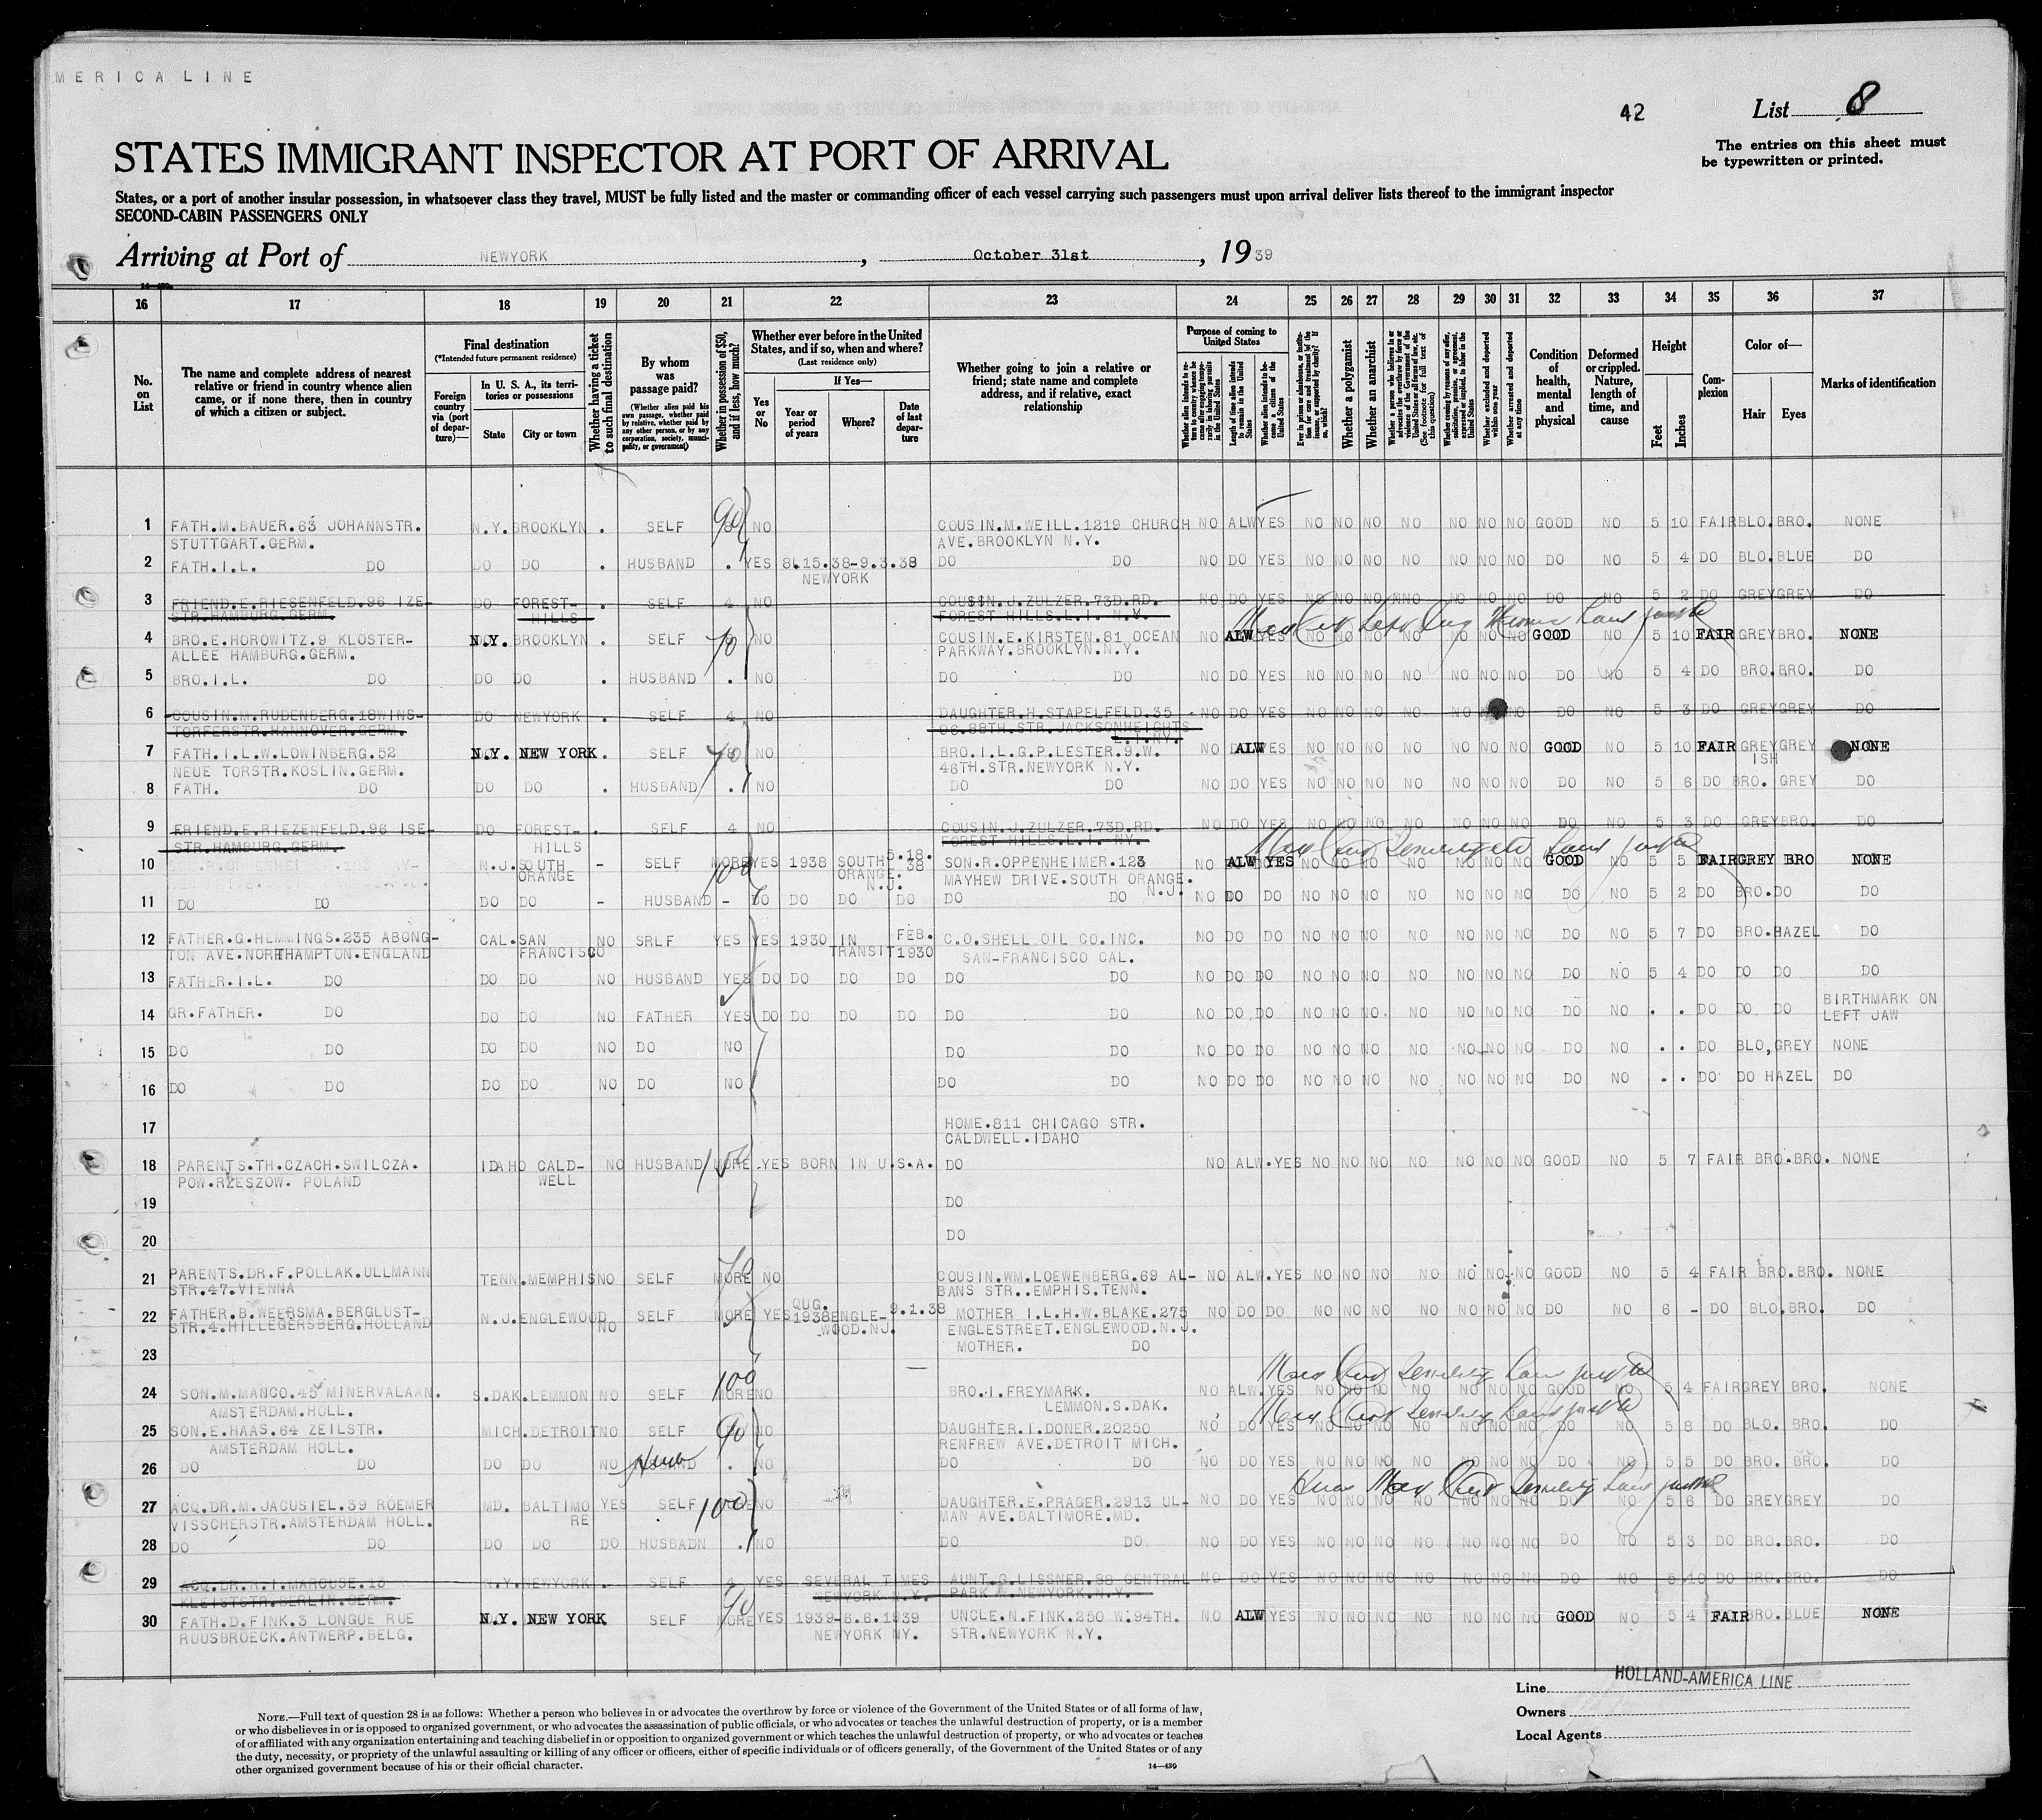 MERICA LINE
42 List 8
The entries on this sheet must
be typewritten or printed.
STATES IMMIGRANT INSPECTOR AT PORT OF ARRIVAL
States, or a port of another insular possession, in whatsoever class they travel, MUST be fully listed and the master or commanding officer of each vessel carrying such passengers must upon arrival deliver lists thereof to the immigrant inspector
SECOND-CABIN PASSENGERS ONLY
Arriving at Port of NEWYORK, October 31st, 1939
16 17 18 19 20 21 22 23 24 25 26 27 28 29 30 31 32 33 34 35 36 37
No. on List
The name and complete address of nearest relative or friend in country whence alien came, or if none there, then in country of which a citizen or subject.
Final destination
(*Intended future permanent residence)
Foreign country via (port of departure)—
In U. S. A., its territories or possessions
State City or town
Whether having a ticket to such final destination
By whom was passage paid?
(Whether alien paid his own passage, whether paid by relative, whether paid by any other person, or by any corporation, society, municipality, or government)
Whether in possession of $50, and if less, how much?
Whether ever before in the United States, and if so, when and where?
(Last residence only)
Yes or No
If Yes—
Year or period of years Where? Date of last departure
Whether going to join a relative or friend; state name and complete address, and if relative, exact relationship
Purpose of coming to United States
Whether alien intends to return to country whence he came after engaging temporarily in laboring pursuits in the United States
Length of time alien intends to remain in the United States
Whether alien intends to become a citizen of the United States
Whether a polygamist
Whether an anarchist
Whether excluded and deported within one year
Whether arrested and deported at any time
Condition of health, mental and physical
Deformed or crippled. Nature, length of time, and cause
Height
Feet Inches
Complexion
Color of—
Hair Eyes
Marks of identification
1 FATH.M.BAUER.63 JOHANNSTR. N.Y. BROOKLYN . SELF 90 NO COUSIN.M.WEILL.1219 CHURCH NO ALW YES NO NO NO NO NO NO NO GOOD NO 5 10 FAIR BLO. BRO. NONE
STUTTGART.GERM. AVE.BROOKLYN N.Y.
2 FATH.I.L. DO DO DO . HUSBAND . YES 8.15.38-9.3.38 DO DO NO DO YES NO NO NO NO NO NO NO DO NO 5 4 DO BLO. BLUE DO
NEWYORK
3 FRIEND.E.RIESENFELD.96 IZE- DO FOREST- . SELF 4 NO COUSSN.J.ZULZER.73D.RD. NO DO YES NO NO NO NO NO NO NO DO NO 5 2 DO GREY GREY DO
STR.HAMBURG.GERM. HILLS FOREST HILLS.L.I. N.Y.
4 BRO.E.HOROWITZ.9 KLOSTER- N.Y. BROOKLYN . SELF 70 NO COUSIN.E.KIRSTEN.81 OCEAN NO ALW YES NO NO NO NO NO NO NO GOOD NO 5 10 FAIR GREY BRO. NONE
ALLEE HAMBURG.GERM. PARKWAY.BROOKLYN.N.Y.
5 BRO.I.L. DO DO DO . HUSBAND . NO DO DO NO DO YES NO NO NO NO NO NO NO DO NO 5 4 DO BRO. BRO. DO
6 COUSIN.M.RUDENBERG.18WINS- DO NEWYORK . SELF 4 NO DAUGHTER.H.STAPELFELD.35 NO DO YES NO NO NO NO NO NO NO DO NO 5 3 DO GREY GREY DO
TORFERSTR.HANNOVER.GERM. 06.88TH.STR.JACKSONHEIGHTS
L.I.NY.
7 FATH.I.L.W.LOWINBERG.52 N.Y. NEW YORK. SELF 70 NO BRO.I.L.G.P.LESTER.9.W. NO ALW YES NO NO NO NO NO NO NO GOOD NO 5 10 FAIR GREY GREY NONE
NEUE TORSTR.KOSLIN.GERM. 46TH.STR.NEWYORK N.Y. ISH
8 FATH. DO DO DO . HUSBAND . NO DO DO NO DO YES NO NO NO NO NO NO NO DO NO 5 6 DO BRO. GREY DO
9 FRIEND.E.RIEZENFELD.96 ISE- DO FOREST- . SELF 4 NO COUSIN.J.ZULZER.73D.RD. NO DO YES NO NO NO NO NO NO NO DO NO 5 3 DO GREY BRO. DO
STR.HAMBURG.GERM. HILLS FOREST HILLS.L.I. NY.
10 N.J. SOUTH - SELF MORE 100 YES 1938 SOUTH 5.18. SON.R.OPPENHEIMER.123 NO ALW YES NO NO NO NO NO NO NO GOOD NO 5 5 FAIR GREY BRO NONE
ORANGE ORANGE. 38 MAYHEW DRIVE.SOUTH ORANGE.
N.J. N.J.
11 DO DO DO DO - HUSBAND - DO DO DO DO DO DO NO DO DO NO NO NO NO NO NO NO DO NO 5 2 DO BRO. DO DO
12 FATHER.G.HEMMINGS.235 ABONG- CAL. SAN NO SRLF YES YES 1930 IN FEB. C.O.SHELL OIL CO.INC. NO DO DO NO NO NO NO NO NO NO DO NO 5 7 DO BRO. HAZEL DO
TON AVE.NORTHAMPTON.ENGLAND FRANCISCO TRANSIT 1930 SAN-FRANCISCO CAL.
13 FATHER.I.L. DO DO DO NO HUSBAND YES DO DO DO DO DO DO NO DO DO NO NO NO NO NO NO NO DO NO 5 4 DO DO DO DO
14 GR.FATHER. DO DO DO NO FATHER YES DO DO DO DO DO DO NO DO DO NO NO NO NO NO NO NO DO NO . . DO DO DO BIRTHMARK ON
LEFT JAW
15 DO DO DO DO NO DO NO DO DO NO DO DO NO NO NO NO NO NO NO DO NO . . DO BLO, GREY NONE
16 DO DO DO DO NO DO NO DO DO NO DO DO NO NO NO NO NO NO NO DO NO . . DO DO HAZEL DO
17 HOME.811 CHICAGO STR.
CALDWELL.IDAHO
18 PARENTS.TH.CZACH.SWILCZA. IDAHO CALD- NO HUSBAND MORE YES BORN IN U.S.A. DO NO ALW. YES NO NO NO NO NO NO NO GOOD NO 5 7 FAIR BRO. BRO. NONE
POW.RZESZOW. POLAND WELL
19 DO
20 DO
21 PARENTS.DR.F.POLLAK.ULLMANN TENN. MEMPHIS NO SELF MORE NO COUSIN.WM.LOEWENBERG.69 AL- NO ALW. YES NO NO NO NO NO NO NO GOOD NO 5 4 FAIR BRO. BRO. NONE
STR.47.VIENNA BANS STR..EMPHIS.TENN.
22 FATHER.B.WEERSMA.BERGLUST- N.J. ENGLEWOOD NO SELF MORE YES QUG. 1938 ENGLE- 9.1.38 MOTHER I.L.H.W.BLAKE.275 NO DO DO NO NO NO NO NO NO NO DO NO 6 - DO BLO. BRO. DO
STR.4.HILLEGERSBERG.HOLLAND WOOD.NJ. ENGLESTREET.ENGLEWOOD.N.J.
23 MOTHER. DO
24 SON.M.MANCO.45 MINERVALAAN. S.DAK. LEMMON NO SELF MORE 100 NO BRO.I.FREYMARK. NO ALW. YES NO NO NO NO NO NO NO GOOD NO 5 4 FAIR GREY BRO. NONE
AMSTERDAM.HOLL. LEMMON.S.DAK.
25 SON.E.HAAS.64 ZEILSTR. MICH. DETROIT NO SELF 90 NO DAUGHTER.I.DONER.20250 NO DO YES NO NO NO NO NO NO NO DO NO 5 8 DO BLO. BRO. DO
AMSTERDAM HOLL. RENFREW AVE.DETROIT MICH.
26 DO DO DO DO NO Husb . NO DO DO NO DO YES NO NO NO NO NO NO NO DO NO 5 5 DO BRO. BRO. DO
27 ACQ.DR.M.JACUSIEL.39 ROEMER MD. BALTIMO YES SELF 100 NO DAUGHTER.E.PRAGER.2913 UL- NO DO YES NO NO NO NO NO NO NO DO NO 5 6 DO GREY GREY DO
VISSCHERSTR.AMSTERDAM HOLL. RE MAN AVE.BALTIMORE.MD.
28 DO DO DO DO DO HUSBADN . NO DO DO NO DO YES NO NO NO NO NO NO NO DO NO 5 3 DO BRO. BRO. DO
29 ACQ.DR.H.I.MARCUSE.13 N.Y. NEWYORK . SELF 4 YES SEVERAL TIMES AUNT.G.LISSNER.88 CENTRAL NO DO YES NO NO NO NO NO NO NO DO NO 5 10 DO BRO. BRO. DO
KLEISTSTR.BERLIN.GERM. NEWYORK N.Y. PARK W.NEWYORK.N.Y.
30 FATH.D.FINK.3 LONGUE RUE N.Y. NEW YORK. SELF MORE 90 YES 1939-6.6.1939 UNCLE.N.FINK.250 W.94TH. NO ALW YES NO NO NO NO NO NO NO GOOD NO 5 4 FAIR BRO. BLUE NONE
RUUSBROECK.ANTWERP.BELG. NEWYORK NY. STR.NEWYORK N.Y.
Line HOLLAND-AMERICA LINE
Owners
Local Agents
NOTE.—Full text of question 28 is as follows: Whether a person who believes in or advocates the overthrow by force or violence of the Government of the United States or of all forms of law,
or who disbelieves in or is opposed to organized government, or who advocates the assassination of public officials, or who advocates or teaches the unlawful destruction of property, or is a member
of or affiliated with any organization entertaining and teaching disbelief in or opposition to organized government or which teaches the unlawful destruction of property, or who advocates or teaches
the duty, necessity, or propriety of the unlawful assaulting or killing of any officer or officers, either of specific individuals or of officers generally, of the Government of the United States or of any
other organized government because of his or their official character.
14—430